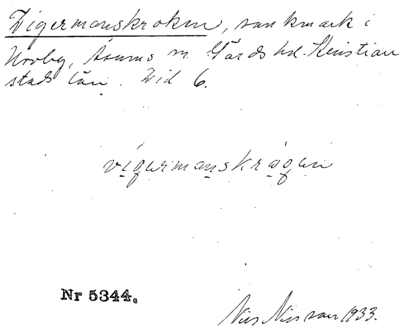 Vigermanskroken, sankmark i
Urroby, Åsums sn. Gärds hd. Kristian
stads län. Vid 6.
vigermanskrågen
Nr 5344.
Nils Nilsson 1933.